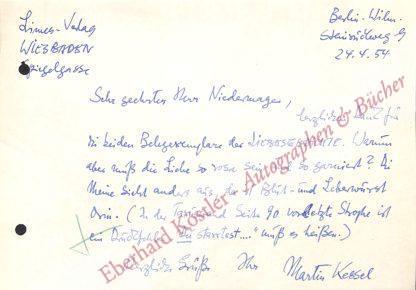 Limes-Verlag
WIESBADEN
Spiegelgasse
Berlin-Wilm.
Steinrückweg 9
24.4.54
Sehr geehrter Herr Niedermayer,
herzlichen Dank für
die beiden Belegexemplare der LIEBESGEDICHTE. Warum
aber muß die Liebe so rosa sein und so garniert? In
Meine sieht anders aus, da ist Blut- und Leberwurst
drin. (In der Seite 90 vorletzte Strophe ist
ein Druckfehler. Du starrtest...." muß es heißen.)
Herzliche Grüße Ihr Martin Kessel
Eberhard Köstler - Autographen & Bücher